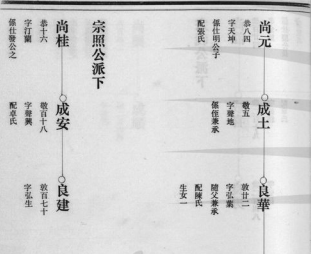 尚元
恭八四
字天坤
係仕明公子
配張氏
成土
敬五
字聲地
係侄兼承
良華
敦廿二
字弘葉
隨父兼承
配陳氏
生女一
宗照公派下
尚桂
恭十六
字汀蘭
係仕發公之
成安
敬百十八
字聲興
配卓氏
良建
敦百七十
字弘生